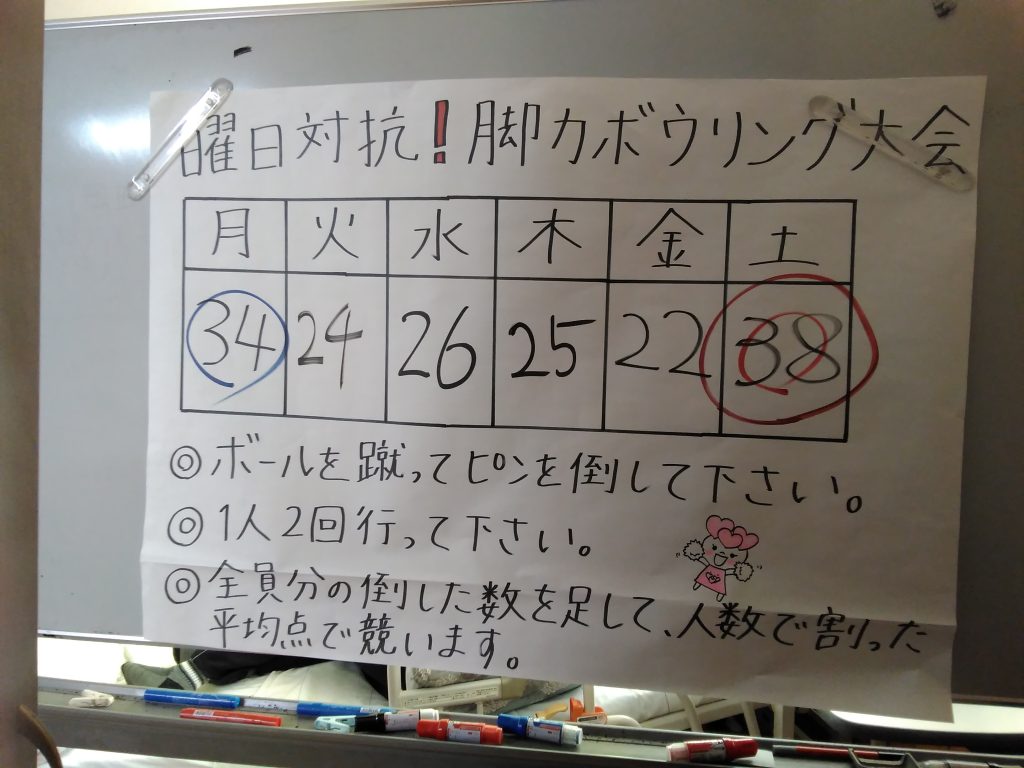 曜日対抗!脚力ボウリング大会
月 火 水 木 金 土
34 24 26 25 22 38
◎ボールを蹴ってピンを倒して下さい。
◎1人2回行って下さい。
◎全員分の倒した数を足して、人数で割った
平均点で競います。